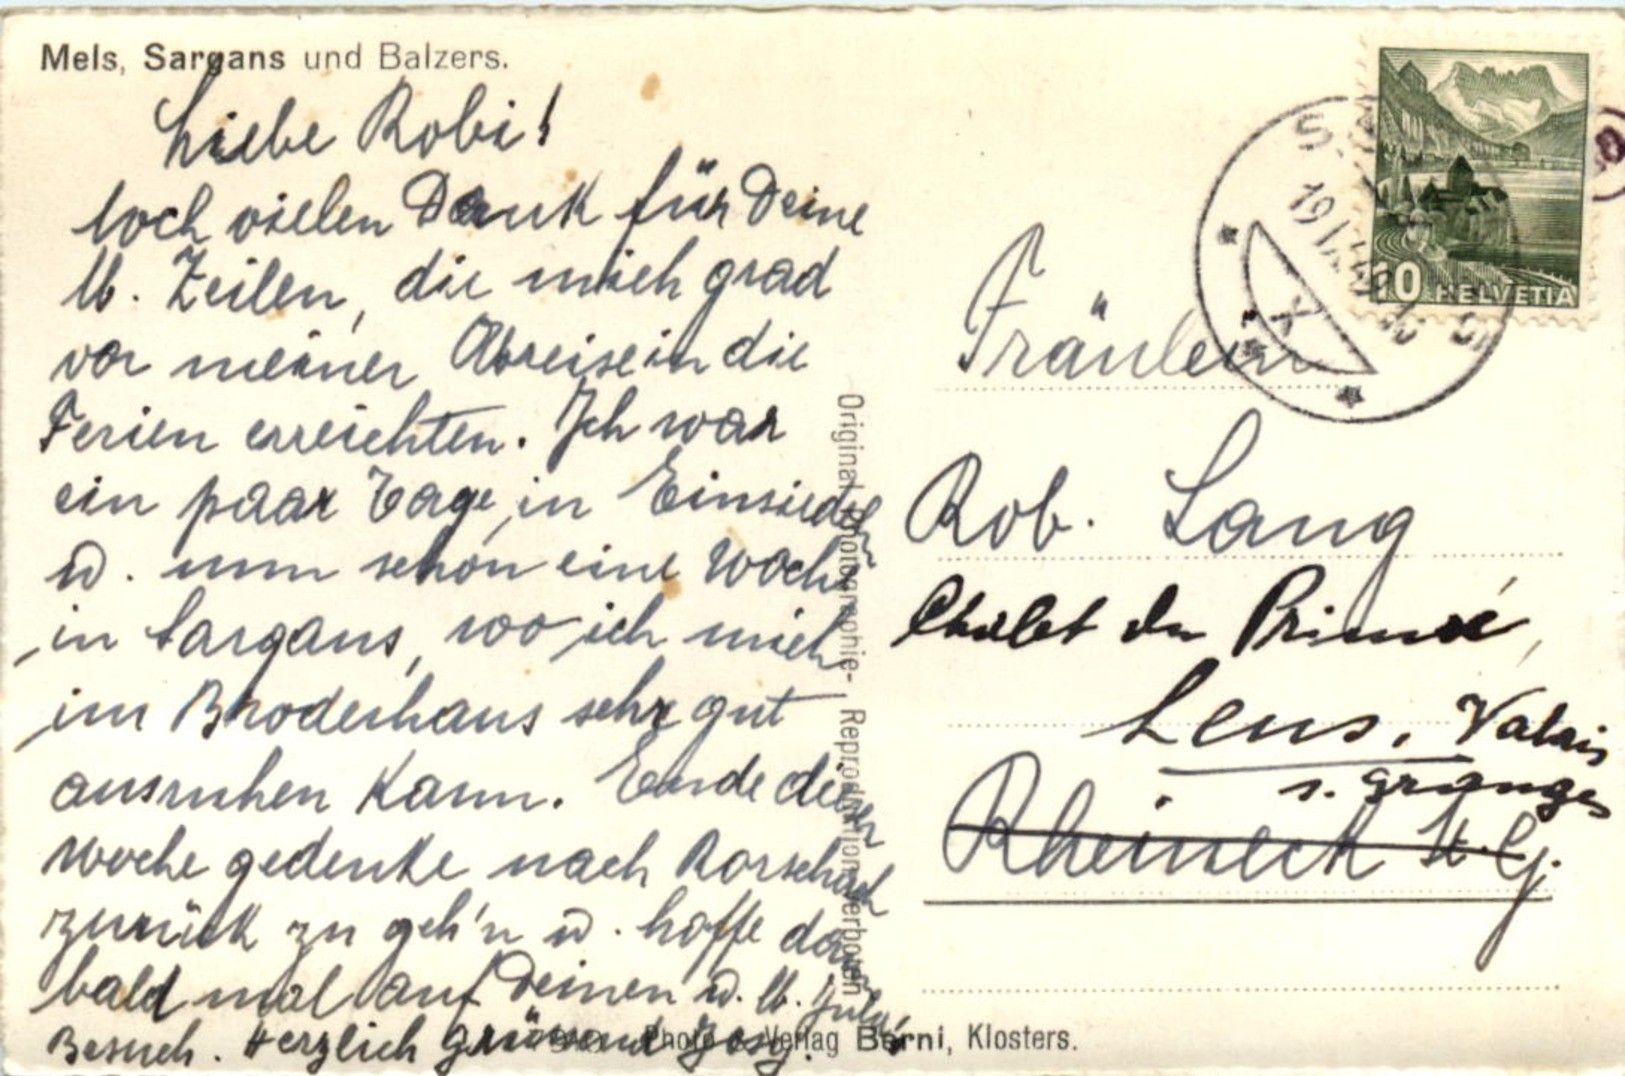 Mels, Sargans und Balzers.
Liebe Robi!
Noch vielen Dank für Deine
lb. Zeilen, die mich grad
vor meiner Abreise in die
Ferien erreichten. Ich war
ein paar Tage in Einsiedeln
u. nun schon eine Woche
in Sargans, wo ich mich
im Broderhaus sehr gut
ausruhen kann. Ende dieser
Woche gedenke nach Rorschach
zurück zu geh'n u. hoffe dann
bald mal auf Deinen u. lb.
Besuch. Herzlich grüssend
Photo & Verlag Berni, Klosters.
Original-Photographie- Reproduktion verboten
HELVETIA
10
Fräulein
Rob. Lang
Chalet du Primvé,
Lens, Valais
s. Granges
Rheineck St. G.